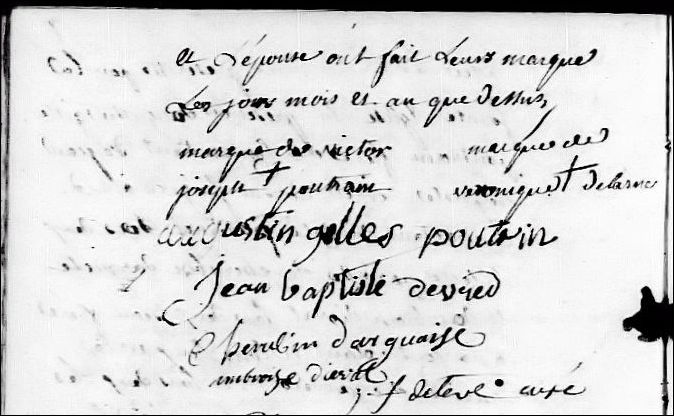 et L'épouse ont fait Leurs marque
Les jours mois et an que dessus
marque de victor marque de
joseph + poutrain veronique +
augustin gilles poutrin
Jean baptiste devred
Cherubin d'arquaise
ambroise
curé